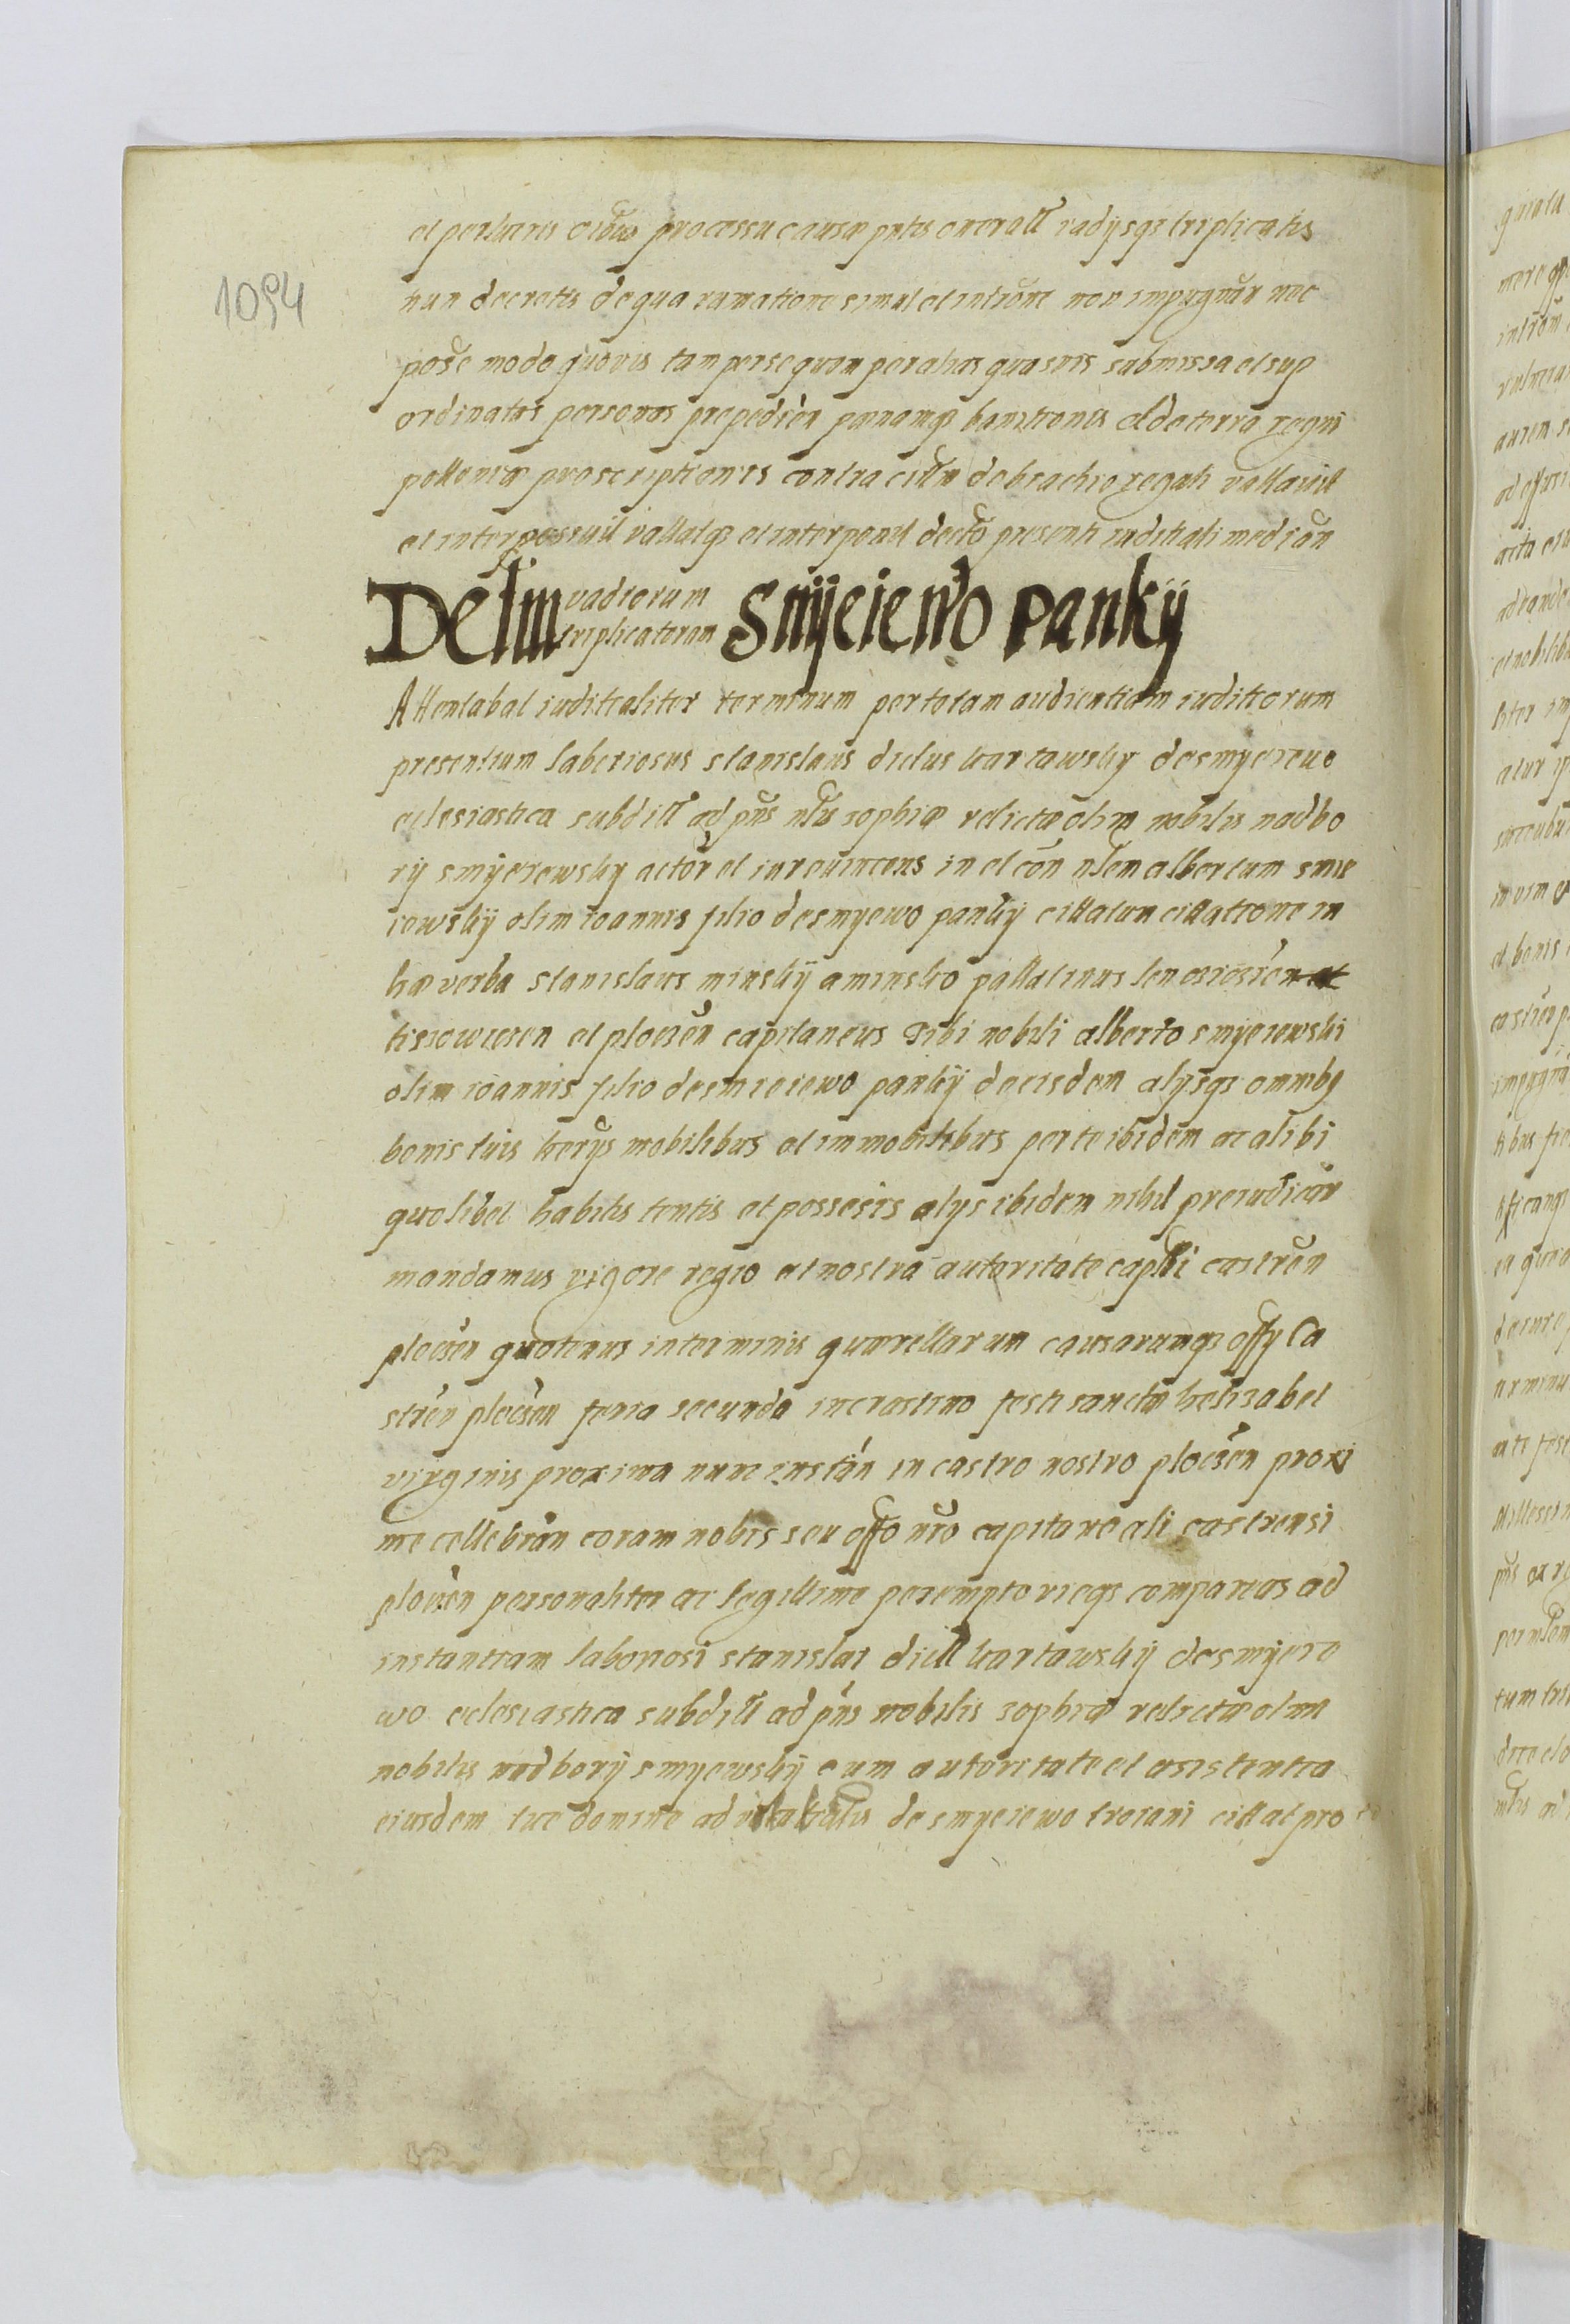 1094
et portaris eidem processu causæ pntis oneratt vadysqz triplicatis
hun decretis de qua rumatione simul et intrōne non impugnār nec
pose modo quovis tam per se quam per alias quasvis submissa et sup
ordinatas personas prepedien pænamqz banitionis et de terra regni
polloniæ proscriptionis contra cittm de brachio regali vallavitt
et interposuit vallatqz et interponit decto presenti iuditiali median
Delim vadiorum triplicatorum Smÿeiewo pankÿ
Attentabat iuditialiter terminum per totam audientiam iuditiorum
presentium laboriosus stanislaus dictus kartawsky de smyeiewo
eclesiastica subditt ad pns nlis zophiæ relictæ olim nobilis nadbo
rÿ smÿeiewskÿ actōr et iurevincens in et cōn nlem albertum smie
iewskÿ olim ioannis filio de smyewo pankÿ cittatun cittatione in
hæc verba Stanislaus minskÿ a minsko pallatinus lencicien
et plocen capitaneus Tibi nobili alberto smyeiewski
olim ioannis filio de smieiewo pankÿ de eisdem alysqz omnibg
bonis tuis terys mobilibus et immobilibus per te ibidem ac alibi
quolibet habitis tentis et possesis alys ibidem nihil preiudicār
mandamus vigore regio et nostra autoritate capttli castren
plocen quatenus in terminis quærellarum causarumqz offy Ca
stren plocen feria secunda in crastino festi sanctæ helizabet
virginis proxima nunc instān in castro nostro plocen proxi
me cellebrān coram nobis seu offo nro capitaneali castrensi
plocen personaliter ac legittime peremptorieqz compareas ad
instantiam laboriosi stanislai dictt kartawskÿ de smÿeie
wo eclesiastica subditt ad pns nobilis zophiæ relictæ olim
nobilis nadborÿ smyewskÿ cum autoritate et asistentia
eiusdem suæ domine de smyeiewo troiani cittat pro